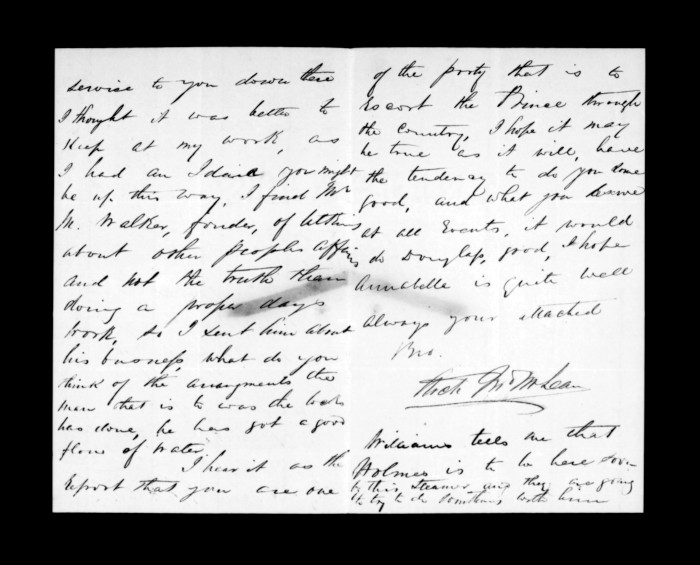 service to you down there
I thought it was better to
Keep at my work, as
I had an Idaia you might
be up this way, I find Mr
M. Walker, fonder, of letting
about other peoples affairs
and not the truth than
doing a proper days
work, so I sent him about
his busness, what do you
think of the arrangments the
man that is to was the
has done, he has got a good
flow of water.
I hear it as the
report that you are one
of the party that is to
escort the Prince through
the country, I hope it may
be true as it will, have
the tendency to do you some
good, and what you deserve
at all Events, it would
do Douglass, good, I hope
Annabella is quite well
always your attached
Bro.
Archd Jno McLean
Williams tells me that
Holmes is to be here soon
by this steamer and they are going
to try to do something with him